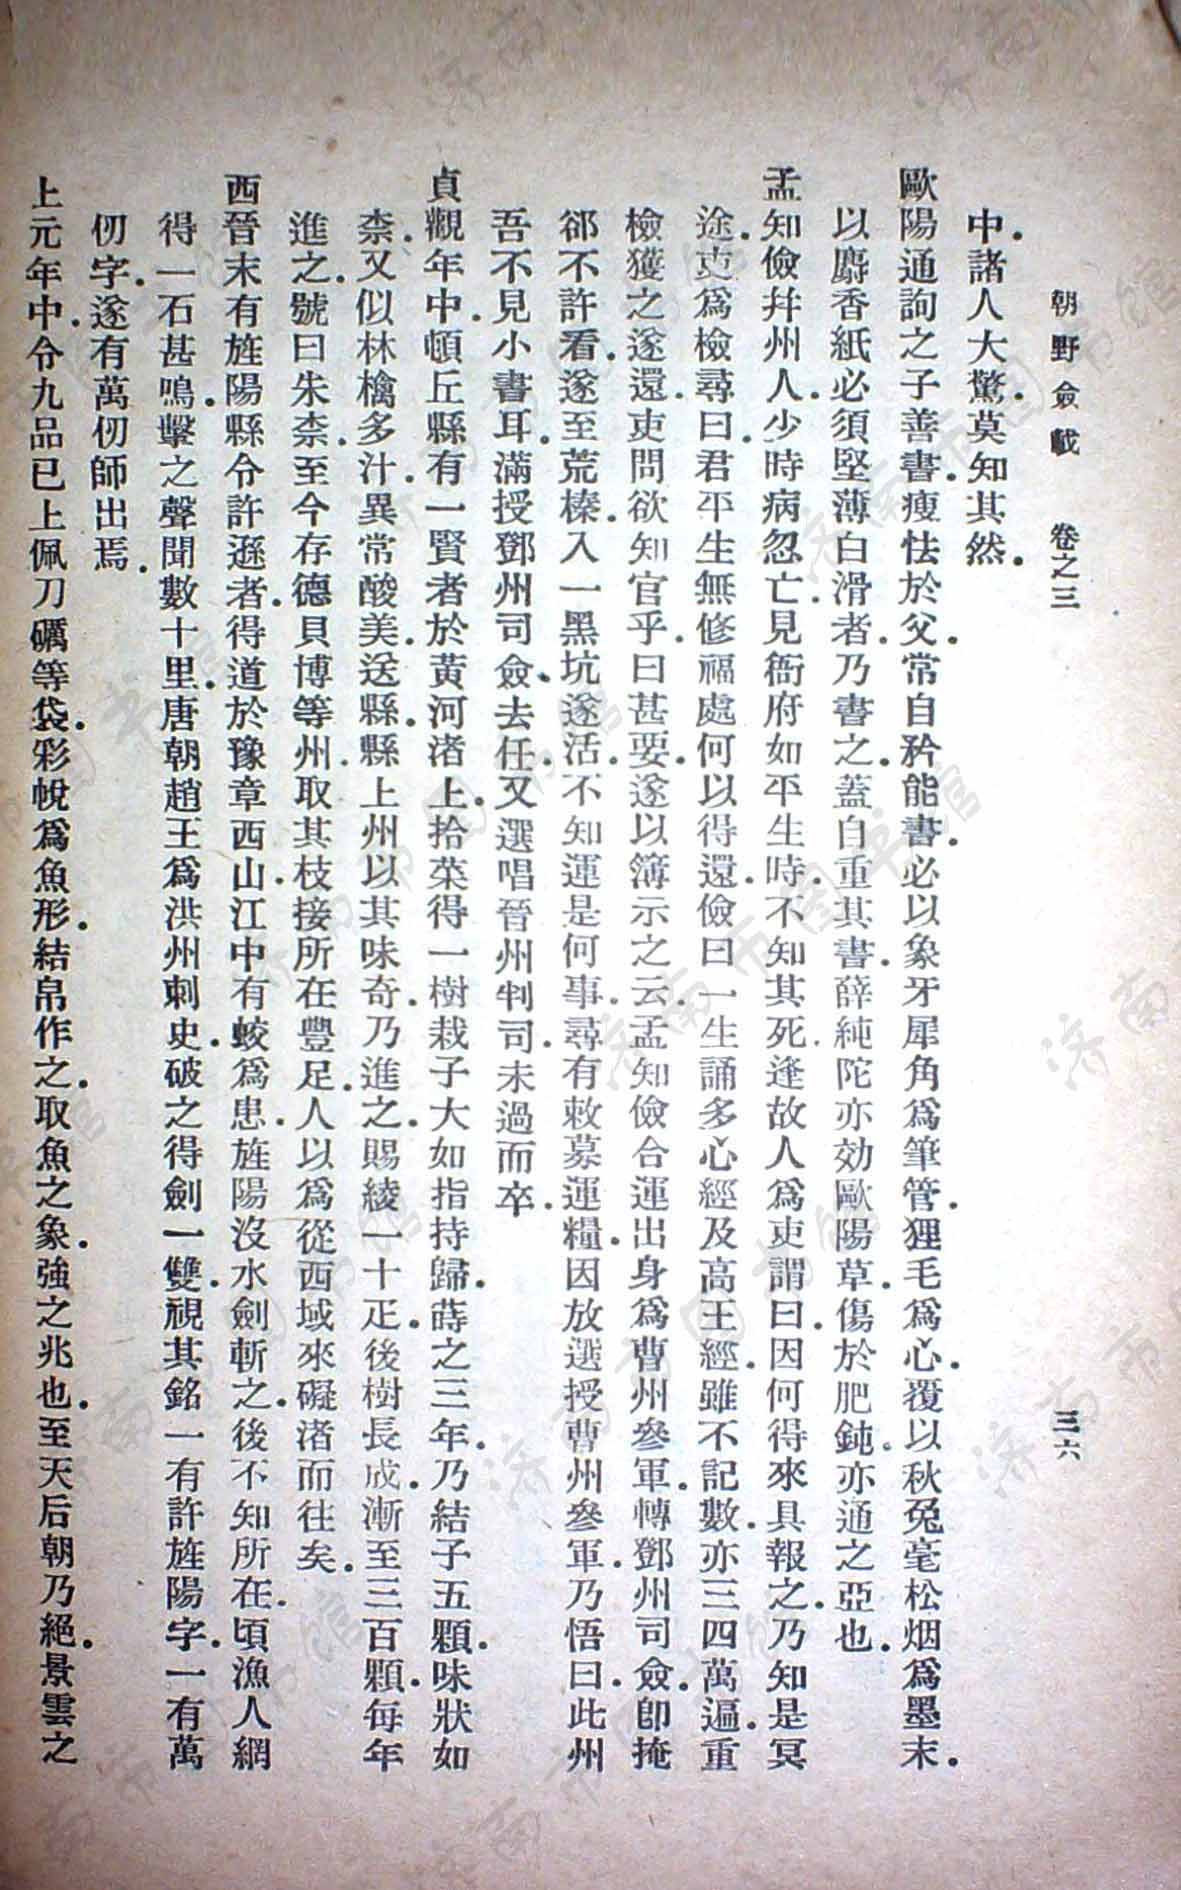 朝野僉載　卷之三　三六
中.諸人大驚.莫知其然.
歐陽通詢之子善書.瘦怯於父.常自矜能書.必以象牙犀角爲筆管.狸毛爲心.覆以秋兔毫松烟爲墨末.
以麝香紙必須堅薄白滑者.乃書之.蓋自重其書.薛純陀亦効歐陽草.傷於肥鈍.亦通之亞也.
孟知儉幷州人.少時病忽亡.見衙府如平生時.不知其死.逢故人爲吏謂曰.因何得來具報之.乃知是冥
途.吏爲檢尋曰.君平生無修福處何以得還.儉曰一生誦多心經及高王經.雖不記數.亦三四萬遍.重
檢獲之遂還.吏問欲知官乎.曰甚要.遂以簿示之.云.孟知儉合運出身爲曹州參軍.轉鄧州司僉.卽掩
郤不許看.遂至荒榛.入一黑坑遂活.不知運是何事.尋有敕募運糧.因放選授曹州參軍.乃悟曰.此州
吾不見小書耳.滿授鄧州司僉.去任.又選唱晉州判司.未過而卒.
貞觀年中.頓丘縣有一賢者於黃河渚上.拾菜得一樹栽子大如指持歸.蒔之三年.乃結子五顆.味狀如
柰.又似林檎多汁.異常酸美.送縣.縣上州以其味奇.乃進之.賜綾一十疋.後樹長成.漸至三百顆.每年
進之.號曰朱柰.至今存.德貝博等州.取其枝接所在豐足.人以爲從西域來.礙渚而往矣.
西晉末有旌陽縣令許遜者.得道於豫章西山.江中有蛟爲患.旌陽沒水劍斬之.後不知所在.頃漁人網
得一石甚鳴.擊之聲聞數十里.唐朝趙王爲洪州刺史.破之得劍一雙.視其銘一有許旌陽字.一有萬
仞字.遂有萬仞師出焉.
上元年中.令九品已上佩刀礪等袋.彩帨爲魚形.結帛作之.取魚之象.強之兆也.至天后朝乃絕.景雲之